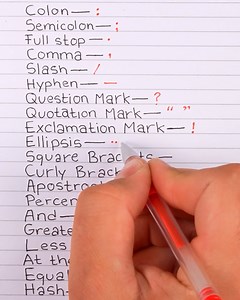 Colon — :
Semicolon — ;
Full stop — .
Comma — ,
Slash — /
Hyphen — –
Question Mark — ?
Quotation Mark — “ ”
Exclamation Mark — !
Ellipsis — ..
Square Brackets —
Curly
And —
Less
At the
Hash